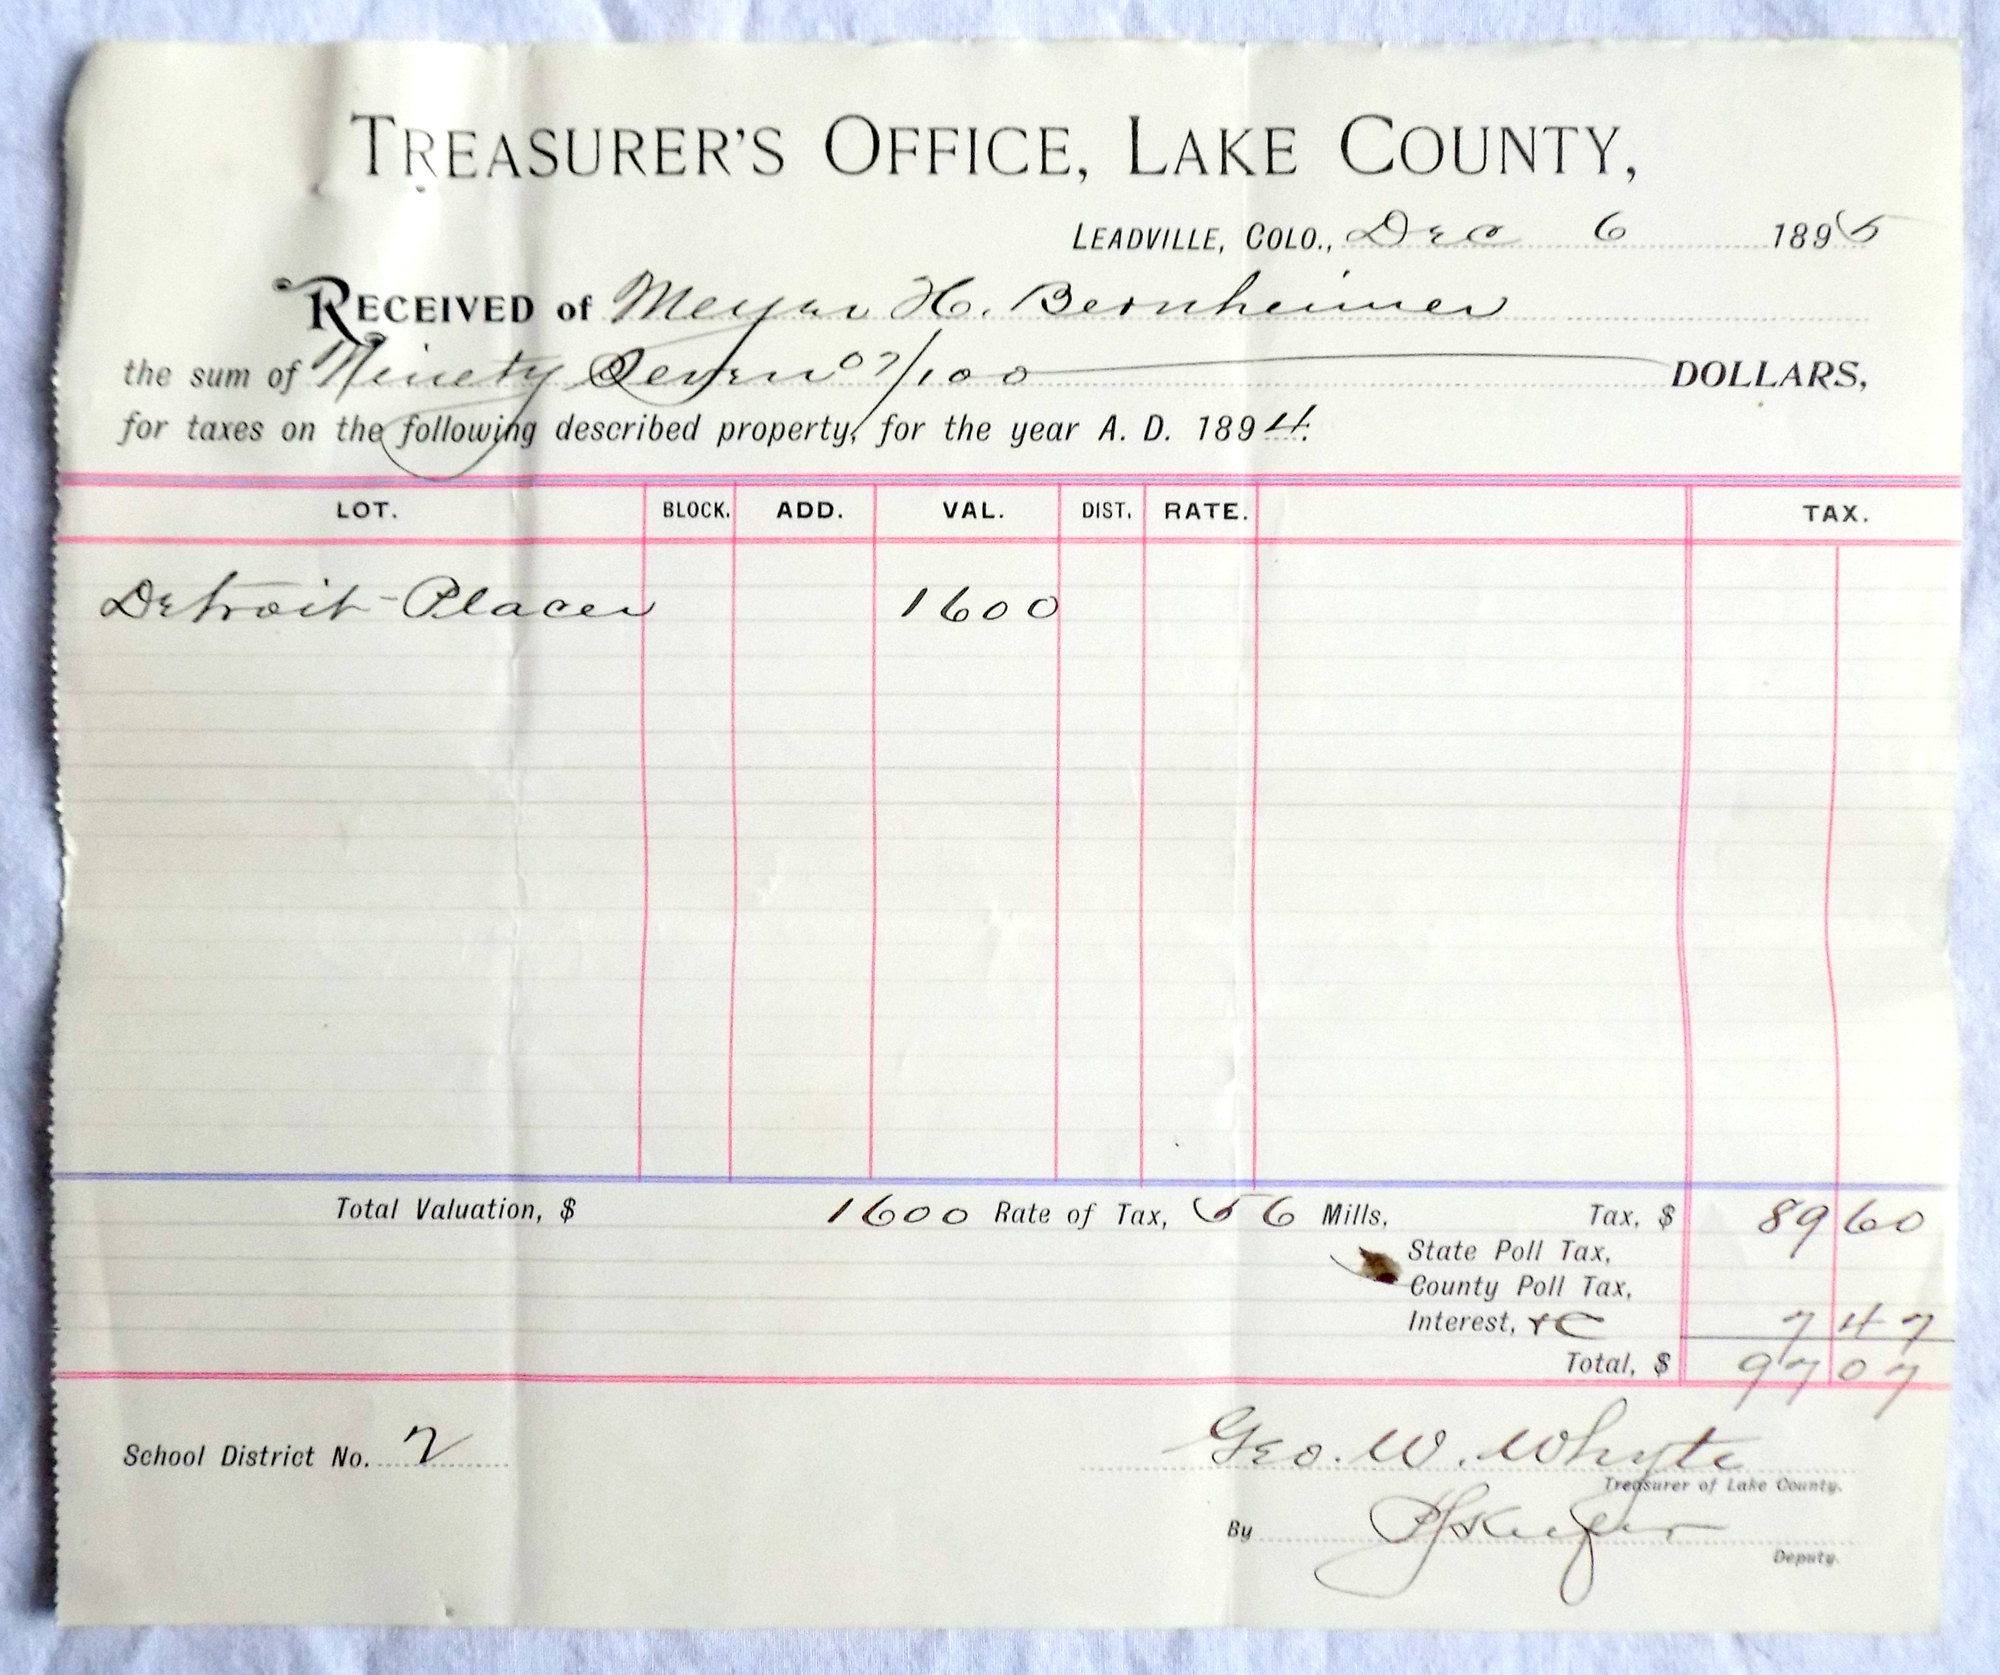 TREASURER'S OFFICE, LAKE COUNTY,
LEADVILLE, COLO., Dec 6 1895
RECEIVED of Meyer H. Bernheimer
the sum of Ninety Seven 07/100 DOLLARS,
for taxes on the following described property, for the year A. D. 1894.
LOT. BLOCK. ADD. VAL. DIST. RATE. TAX.
Detroit Placer 1600
Total Valuation, $ 1600 Rate of Tax, 56 Mills, Tax, $ 89 60
State Poll Tax,
County Poll Tax,
Interest, &C 7 47
Total, $ 97 07
School District No. 2 Geo. W. Whyte
Treasurer of Lake County.
By
Deputy.